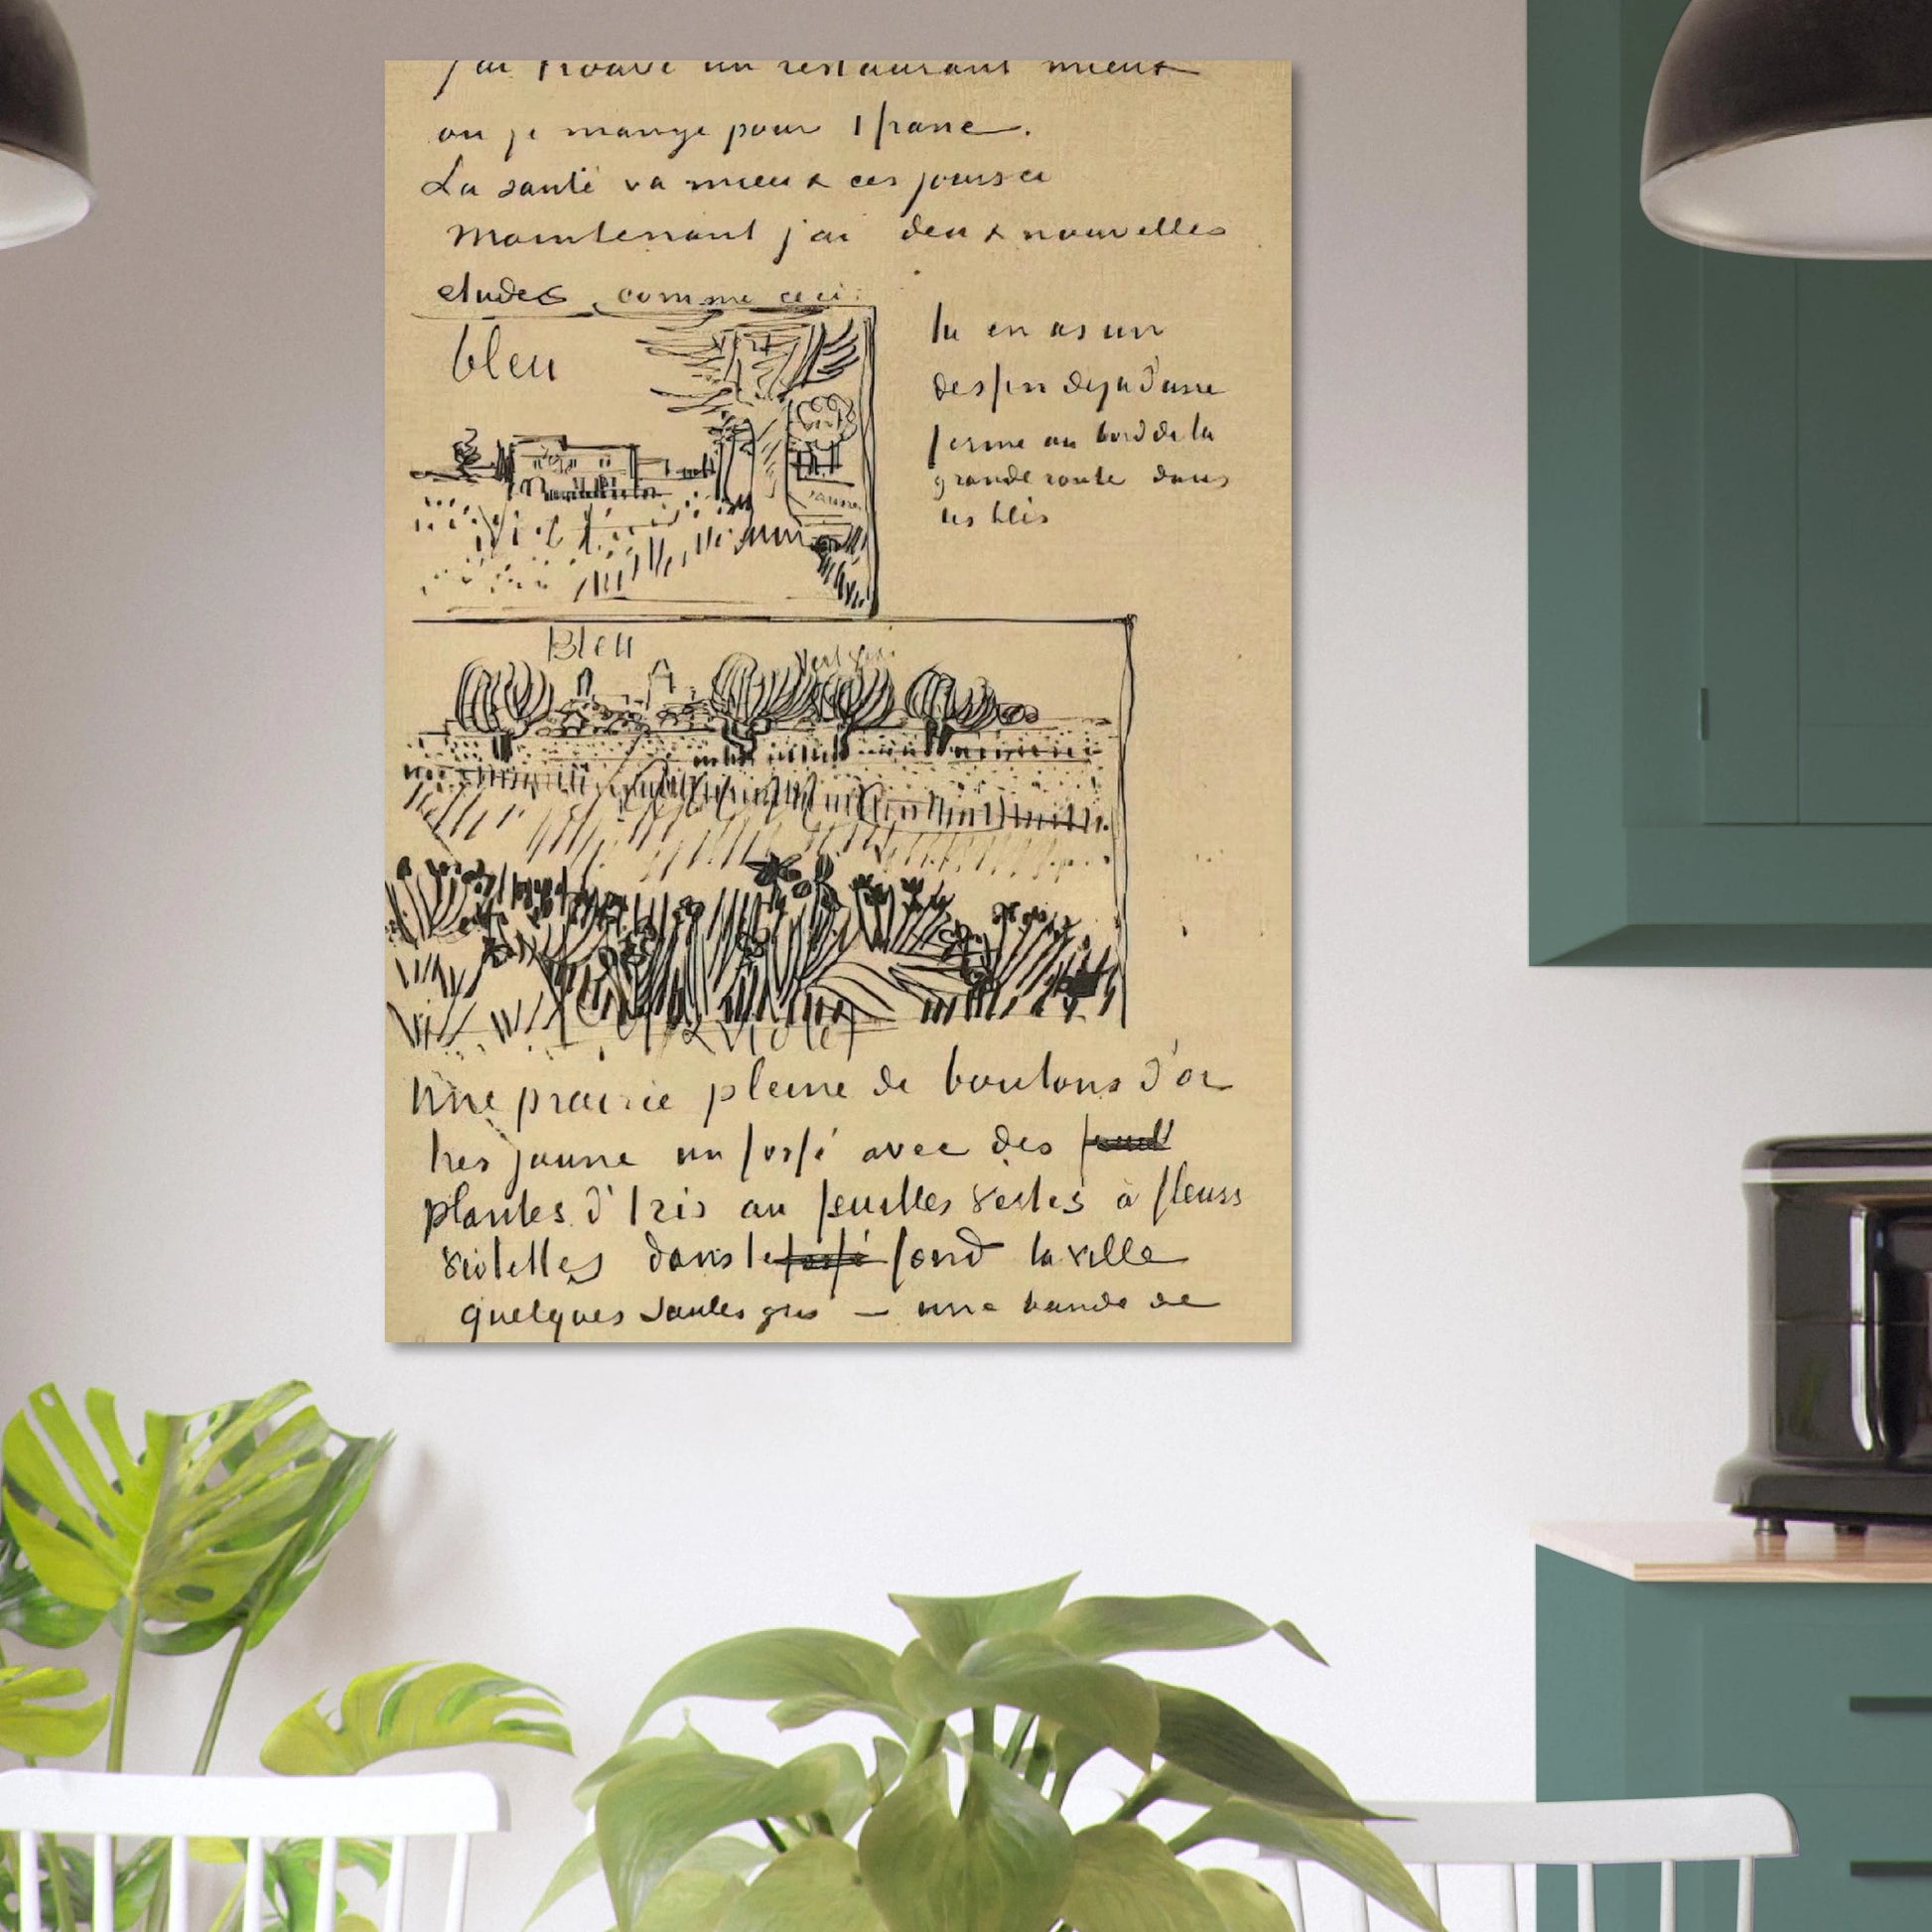 j'ai trouvé un restaurant mieux
ou je mange pour 1 franc.
La santé va mieux ces jours ci
Maintenant j'ai deux nouvelles
etudes comme ceci:
bleu
vert
tu en as un
dessin deja d'une
ferme au bord de la
grande route dans
les blés
jaune
Bleu
vert gris
violet
Une prairie pleine de boutons d'or
tres jaune un fossé avec des
plantes d'Iris au feuilles vertes à fleurs
violettes dans le fossé fond la ville
quelques saules gris — une bande de